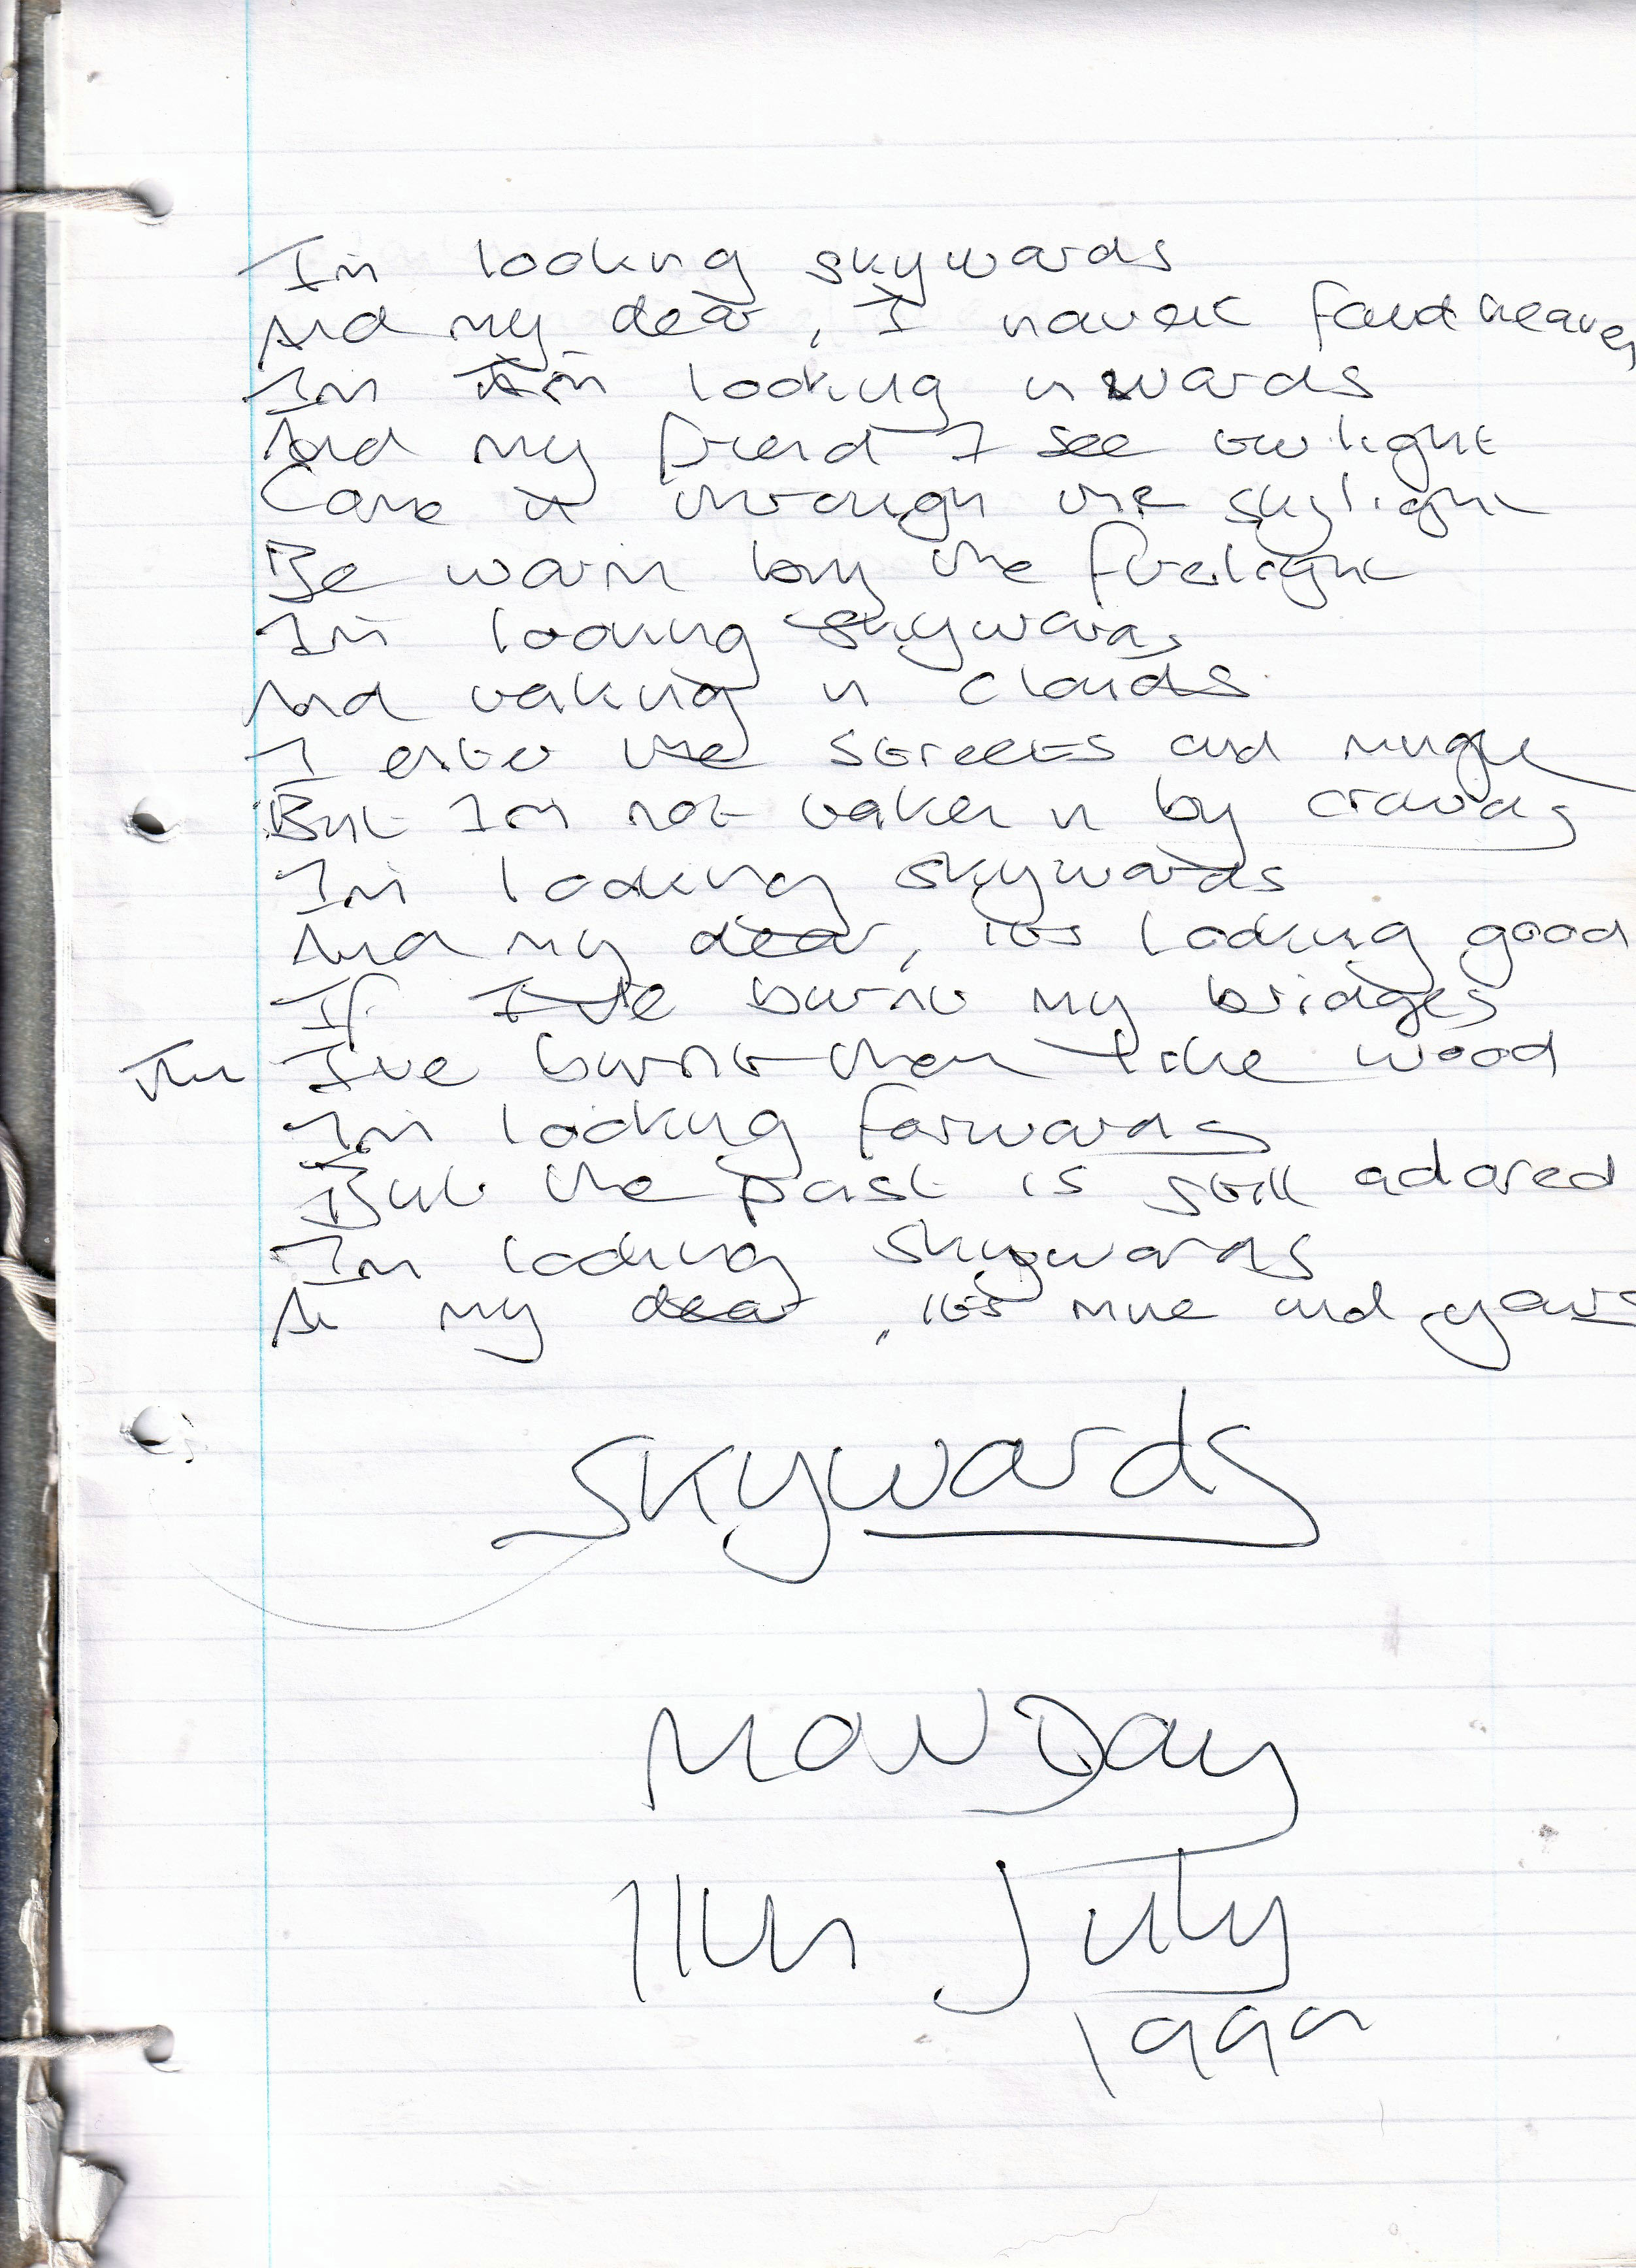 Im looking skywards
And my dear, I havent found heaven
Im looking inwards
And my friend I see twilight
Come in through the skylight
Be warm by the firelight
Im looking skywards
And taking in clouds
I enter the streets and mingle
But Im not taken in by crowds
Im looking skywards
And my dear, its looking good
If I've burnt my bridges
Then I've burnt them like wood
Im looking forwards
But the past is still adored
Im looking skywards
As my dear, its mine and yours
Skywards
MONDay
11th July
1999